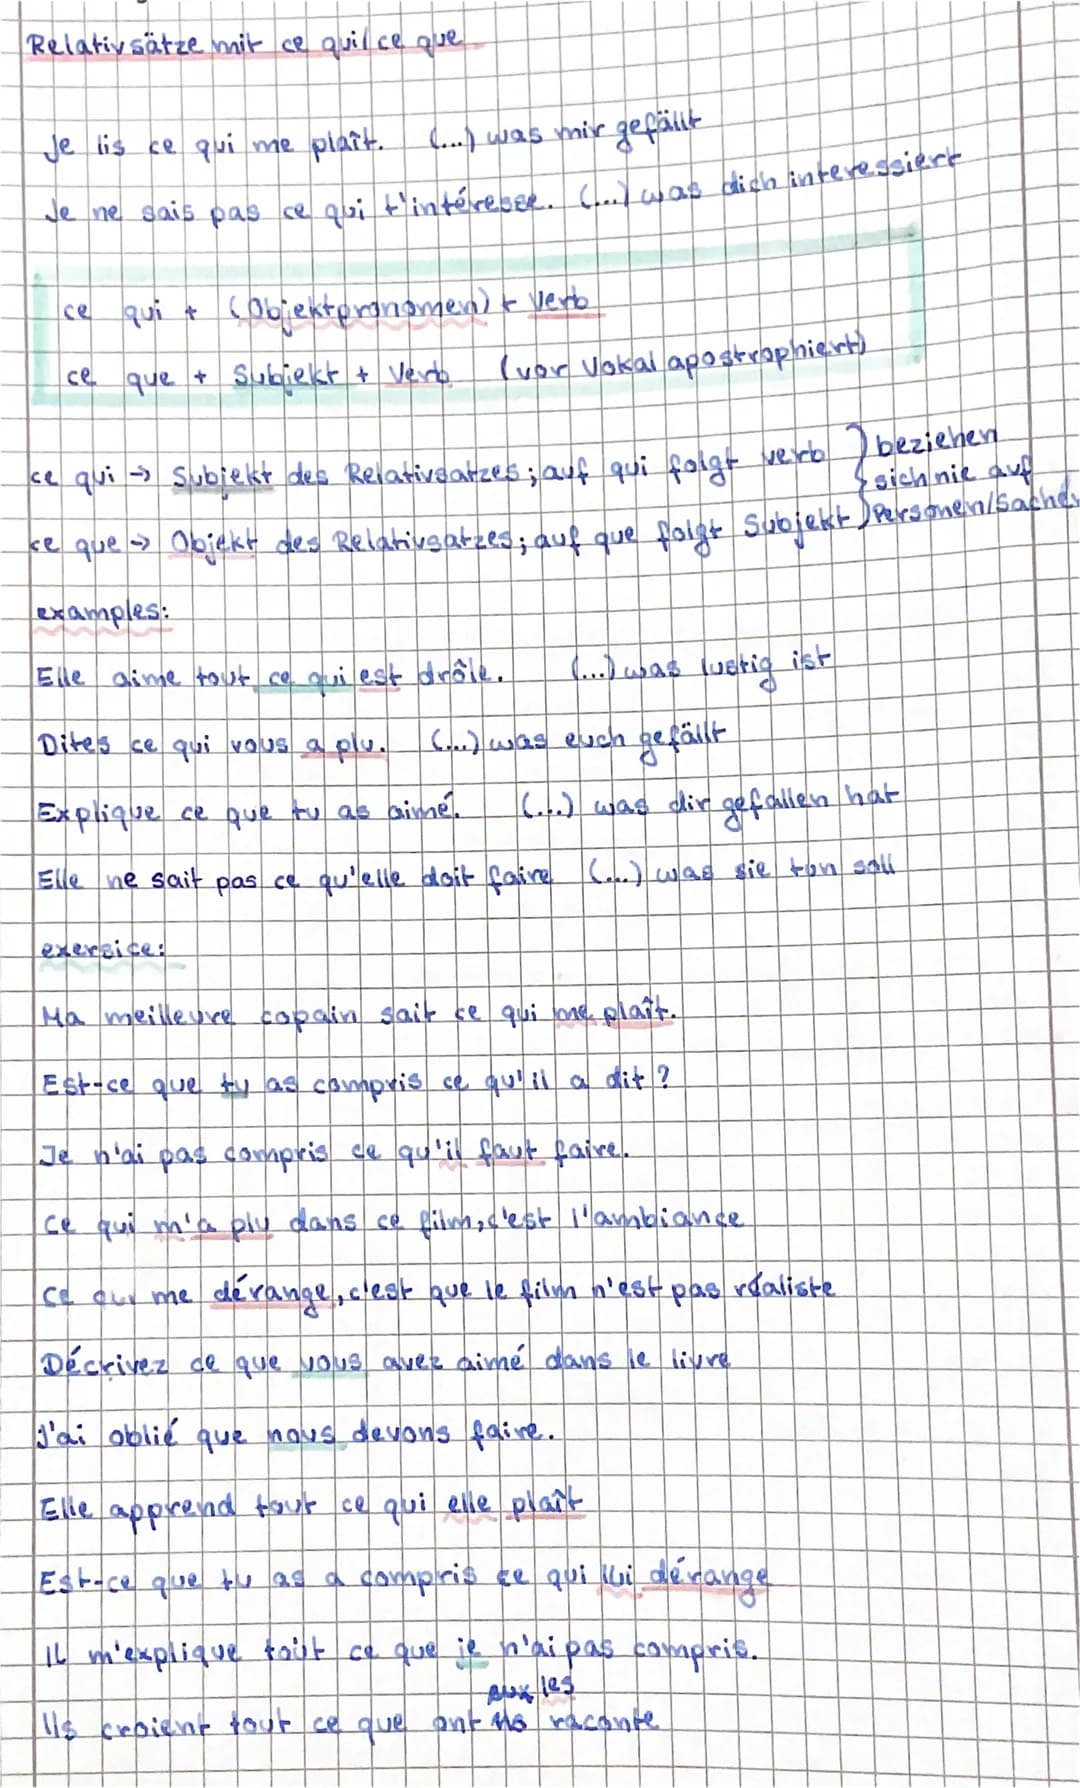 Relativsätze mit ce qui/ce que
Je lis ce qui me plaît. (...) was mir gefällt
Je ne sais pas ce qui t'intéresse. (...) was dich interessiert
ce qui + (Objektpronomen) + Verb
ce que + Subjekt + Verb (vor Vokal apostrophiert)
ce qui → Subjekt des Relativsatzes; auf qui folgt verb } beziehen
sich nie auf
ce que → Objekt des Relativsatzes; auf que folgt Subjekt Personen/Sachen
examples:
Elle aime tout ce qui est drôle. (...) was lustig ist
Dites ce qui vous a plu. (...) was euch gefällt
Explique ce que tu as aimé. (...) was dir gefallen hat
Elle ne sait pas ce qu'elle doit faire (...) was sie tun soll
exersice:
Ma meilleure copain sait ce qui me plaît.
Est-ce que tu as compris ce qu'il a dit?
Je n'ai pas compris ce qu'il faut faire.
Ce qui m'a plu dans ce film, c'est l'ambiance
Ce qui me dérange, c'est que le film n'est pas réaliste
Décrivez ce que vous avez aimé dans le livre
J'ai oblié que nous devons faire.
Elle apprend tout ce qui elle plaît
Est-ce que tu as a compris ce qui lui dérange
Il m'explique tout ce que je n'ai pas compris.
les
Ils croient tout ce que ont raconte